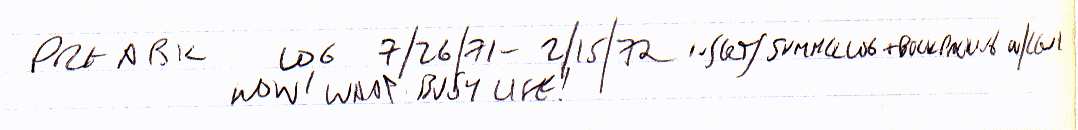 PRE ARK LOG 7/26/71 - 2/15/72 SUMMER LOG + BACKPACKING w/
WOW! WHAT BUSY LIFE!!